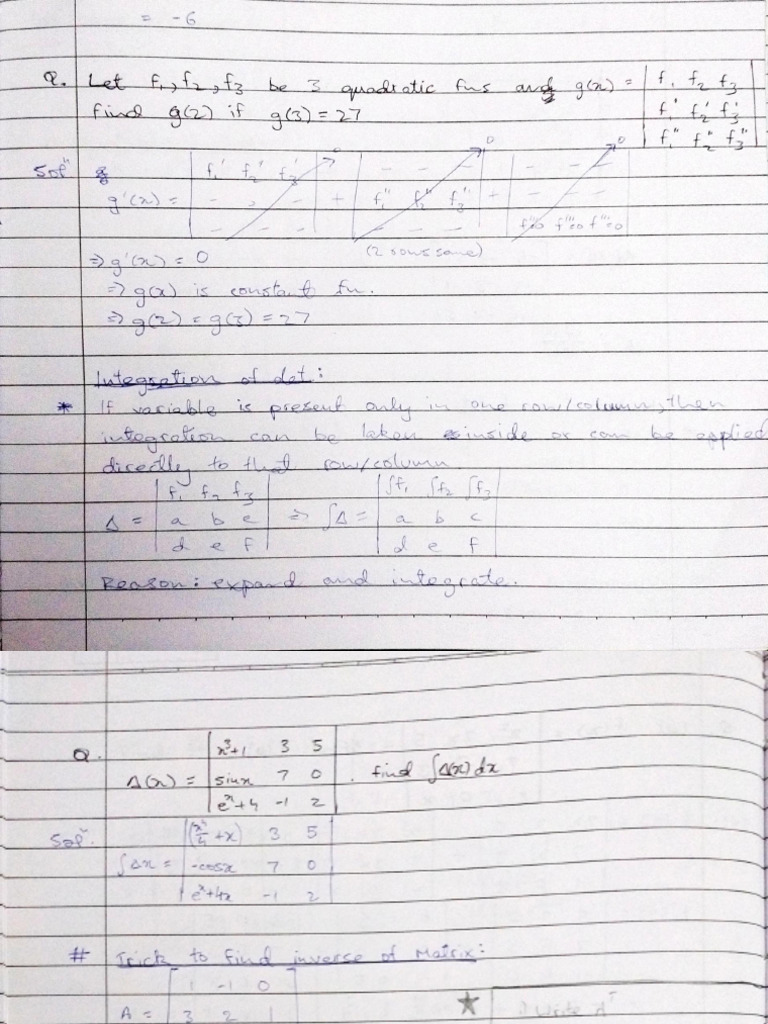 = -6
Q. Let f₁, f₂, f₃ be 3 quadratic fns and g(x) = | f₁ f₂ f₃ |
| f₁' f₂' f₃' |
| f₁" f₂" f₃" |
find g(2) if g(3) = 27
Solⁿ
g'(x) = | f₁' f₂' f₃' | + | - - - | + | - - - |
| - - - | | f₁" f₂" f₃" | | - - - |
| - - - | | - - - | | f'''=0 f'''=0 f'''=0 |
0 0 0
(2 rows same)
⇒ g'(x) = 0
⇒ g(x) is constant fn.
⇒ g(2) = g(3) = 27
Integration of det:
* If variable is present only in one row/column, then
integration can be taken inside or can be applied
directly to that row/column
| f₁ f₂ f₃ | | ∫f₁ ∫f₂ ∫f₃ |
Δ = | a b c | ⇒ ∫Δ = | a b c |
| d e f | | d e f |
Reason: expand and integrate.
Q. | x³+1 3 5 |
Δ(x) = | sinx 7 0 | . find ∫Δ(x) dx
| eˣ+4 -1 2 |
Solⁿ. | (x⁴/4 + x) 3 5 |
∫Δx = | -cosx 7 0 |
| eˣ+4x -1 2 |
# Trick to find inverse of Matrix:
1 -1 0
A = 3 2 1